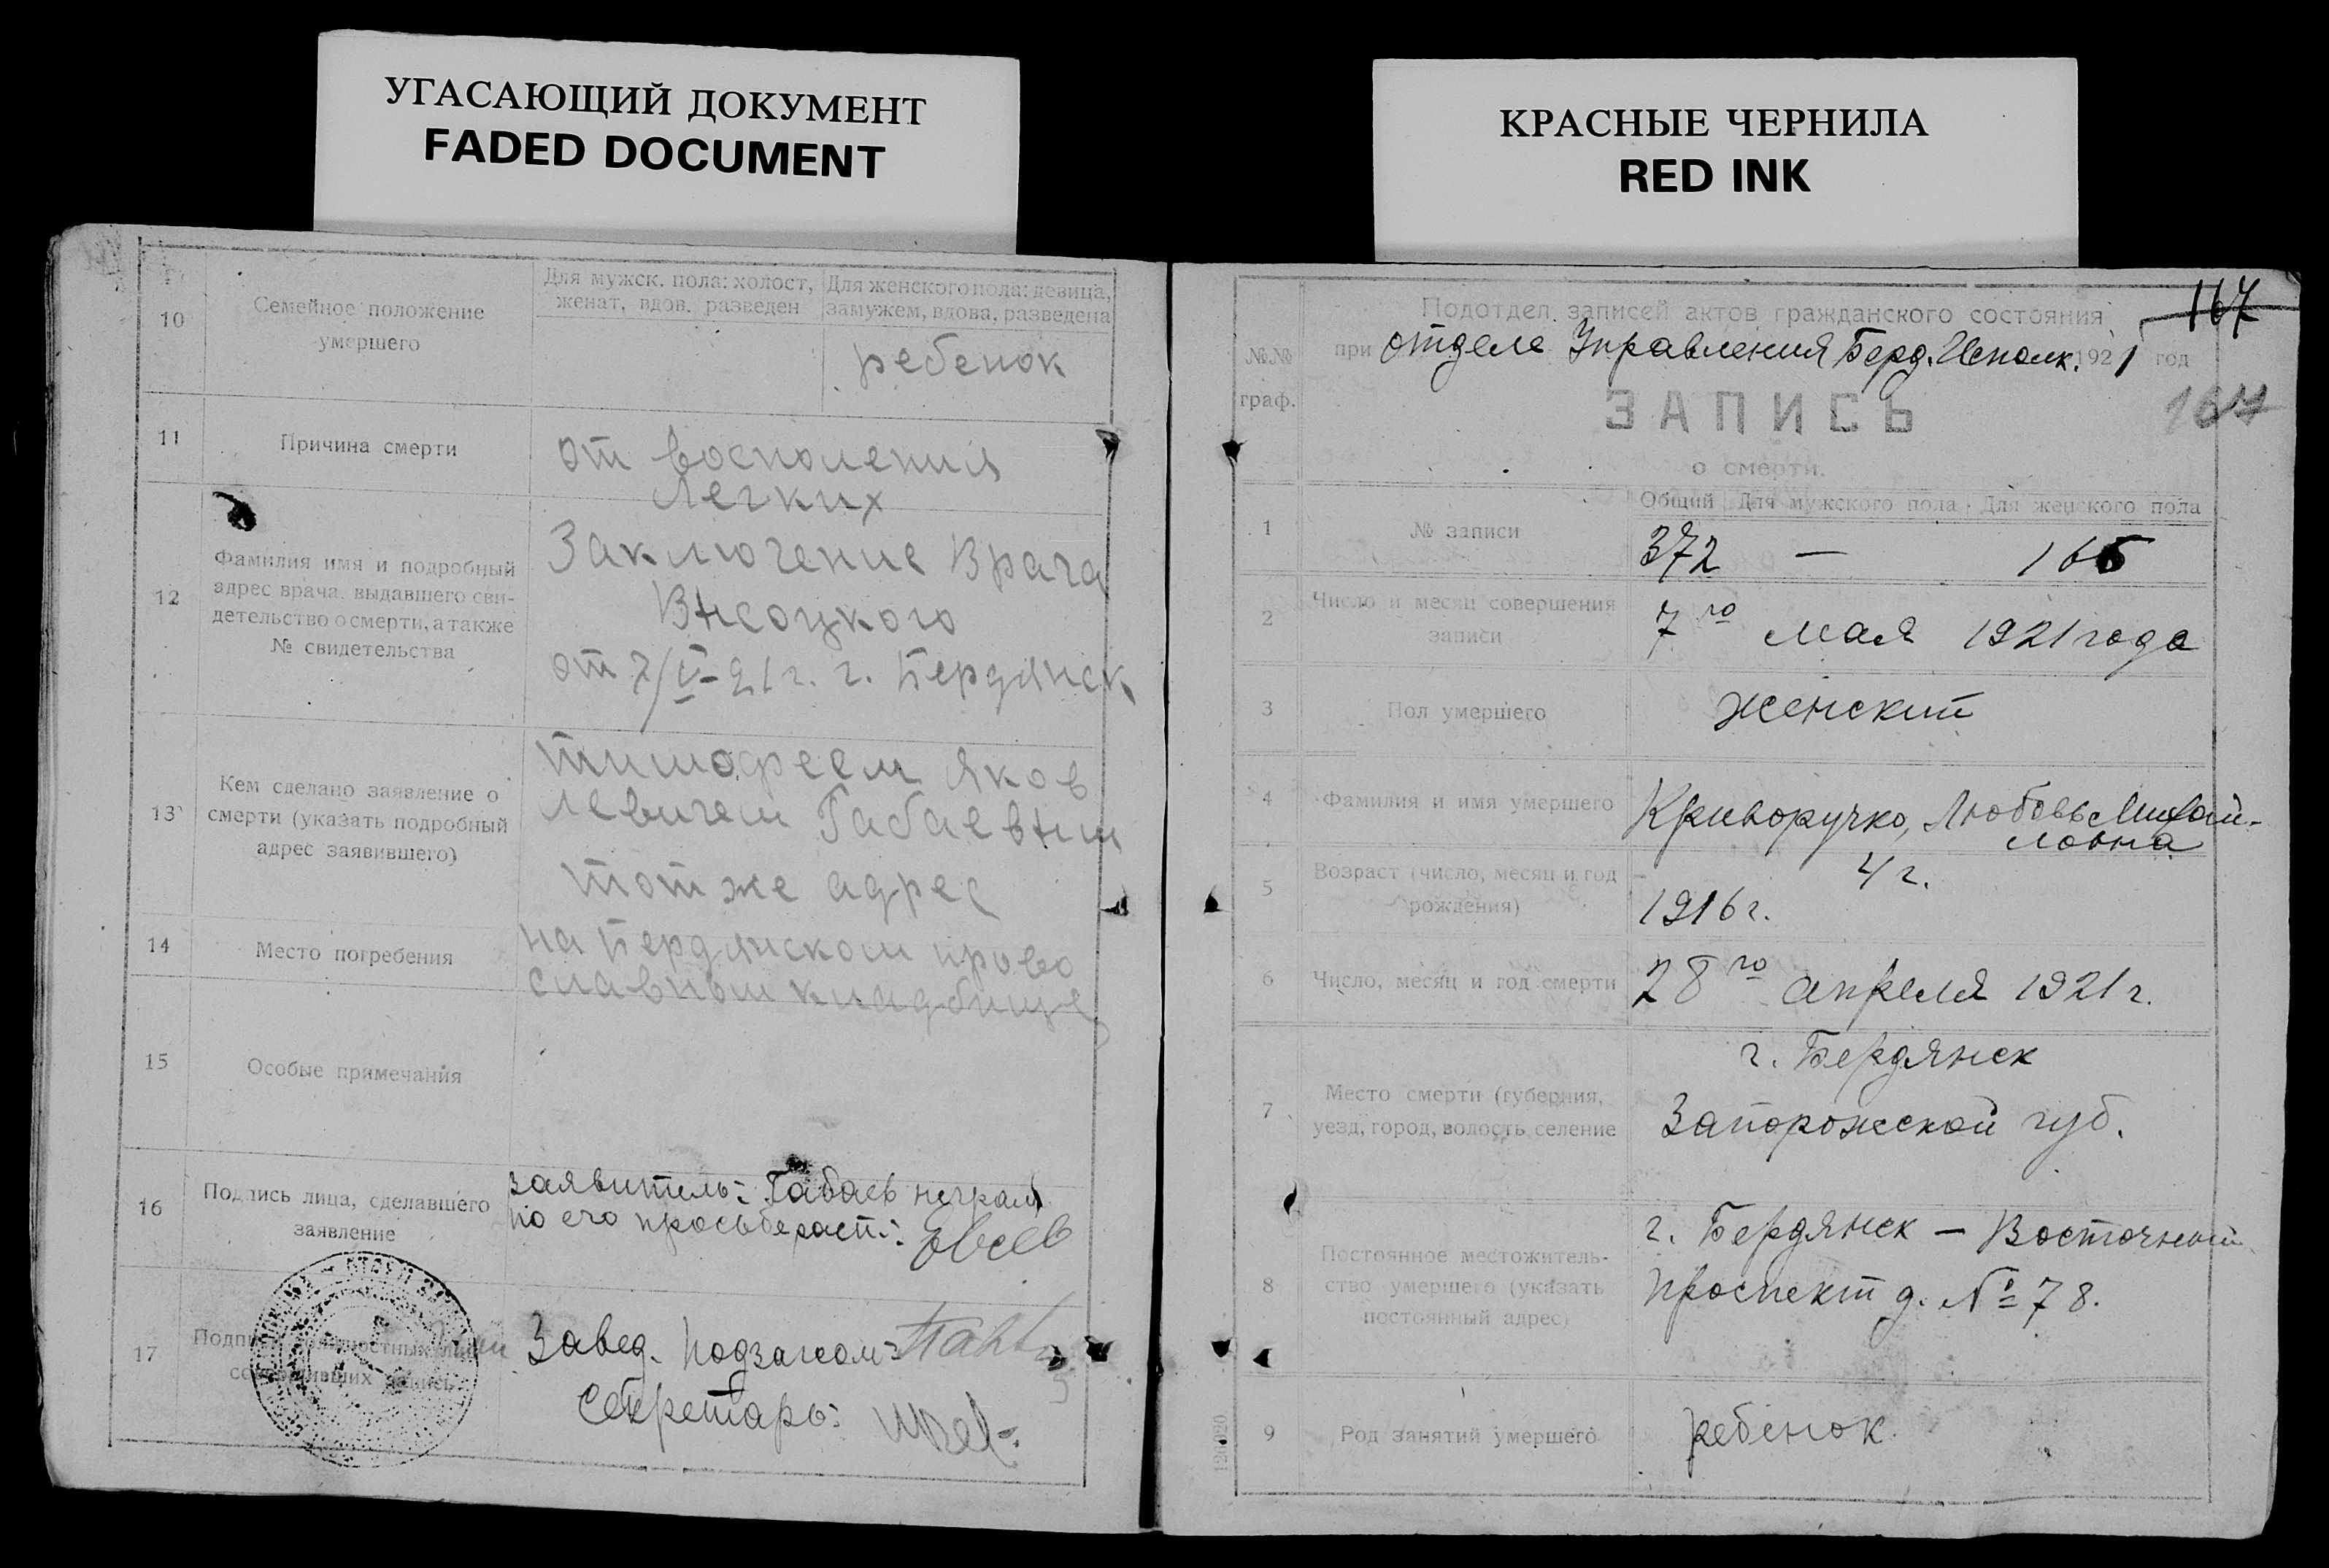 УГАСАЮЩИЙ ДОКУМЕНТ
FADED DOCUMENT
10
Семейное положение
умершего
Для мужск. пола: холост,
женат, вдов, разведен
Для женского пола: девица,
замужем, вдова, разведена
ребенок
11
Причина смерти
от восполения
легких
12
Фамилия имя и подробный
адрес врача, выдавшего сви-
детельство о смерти, а также
№ свидетельства
Заключение Врача
Высоцкого
от 7/V-21 г. г. Бердянск
13
Кем сделано заявление о
смерти (указать подробный
адрес заявившего)
тимофеем яков
левичем Габаевым
тот же адрес
14
Место погребения
на Бердянском право
славном кладбище
15
Особые примечания
16
Подпись лица, сделавшего
заявление
заявитель: Габаев неграм
по его просьбе расп.: Евсев
17
Завед. Подзагсом:
Секретарь:
КРАСНЫЕ ЧЕРНИЛА
RED INK
167
№№
граф.
Подотдел записей актов гражданского состояния
при отделе Управления Берд. Исполк. 1921 год
ЗАПИСЬ
167
о смерти.
1
№ записи
Общий Для мужского пола Для женского пола
372 — 166
2
Число и месяц совершения
записи
7го мая 1921 года
3
Пол умершего
женский
4
Фамилия и имя умершего
Криворучко, Любовь Михай-
ловна
5
Возраст (число, месяц и год
рождения)
4 г.
1916 г.
6
Число, месяц и год смерти
28го апреля 1921 г.
7
Место смерти (губерния,
уезд, город, волость, селение
г. Бердянск
Запорожской губ.
8
Постоянное местожитель-
ство умершего (указать
постоянный адрес)
г. Бердянск — Восточный
проспект д. № 78.
9
Род занятий умершего
ребенок